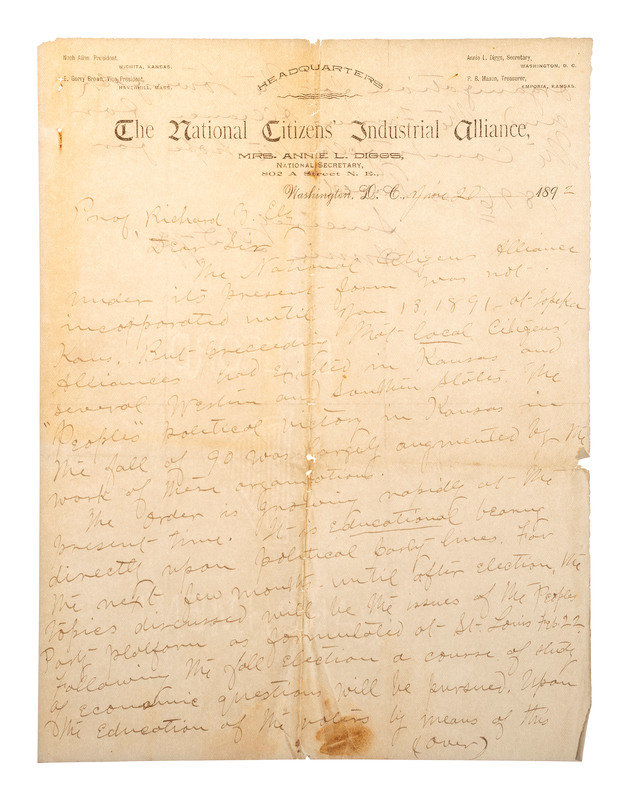 Noah Allen, President,
WICHITA, KANSAS.
E. Gerry Brown, Vice President,
HAVERHILL, MASS.
Annie L. Diggs, Secretary,
WASHINGTON, D. C.
P. B. Maxon, Treasurer,
EMPORIA, KANSAS.
HEADQUARTERS
The National Citizens' Industrial Alliance,
MRS. ANNIE L. DIGGS,
NATIONAL SECRETARY,
802 A Street N. E.,
Washington, D. C. June 189 2
Prof Richard Ely
Dear Sir
The National Citizens Alliance
under its present form was not
incorporated until Jan 13, 1891 - at Topeka
Kans. But preceeding that local Citizens'
Alliances had existed in Kansas and
several Western and Southern States. The
"Peoples" political victory in Kansas in
the fall of 90 was largely augmented by the
work of these organizations.
The Order is growing rapidly at the
present time. It is educational bearing
directly upon political party lines. For
the next few months until after election, the
topics discussed will be the issues of the Peoples
Party platform as formulated at St. Louis Feb 22
Following the fall election a course of study
of Economic questions will be pursued. Upon
the Education of the voters by means of this
(over)